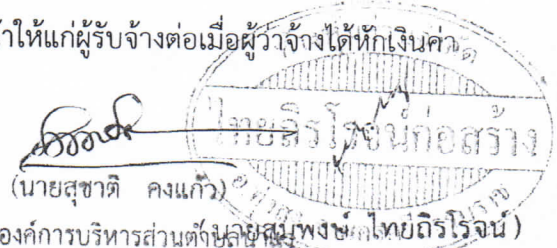 าให้แก่ผู้รับจ้างต่อเมื่อผู้ว่าจ้างได้หักเงินค่า
ไทยถิรโรจน์ก่อสร้าง
(นายสุชาติ คงแก้ว)
องค์การบริหารส่วนตำบล
นายสมพงษ์ ไทยถิรโรจน์)